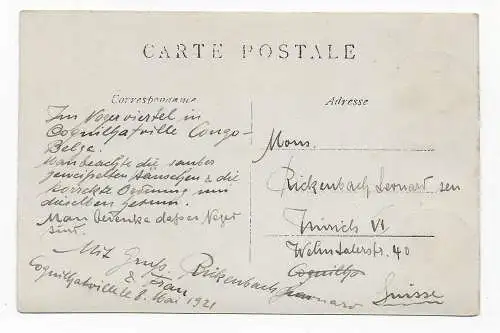 CARTE POSTALE
Correspondance
Adresse
Im Negerviertel in
Coquilhatville Congo-
Belge.
Man beachte die sauber
geweisselten Häuschen & die
korrekte Ordnung um
dieselben herum.
Man bedenke dass es Neger
sind.
Mit Gruss
Rickenbach
& Frau
Coquilhatville le 8. Mai 1921
Mons.
Rickenbach Leonard sen
Zürich VI
Wehntalerstr. 40
Coquilh
Suisse